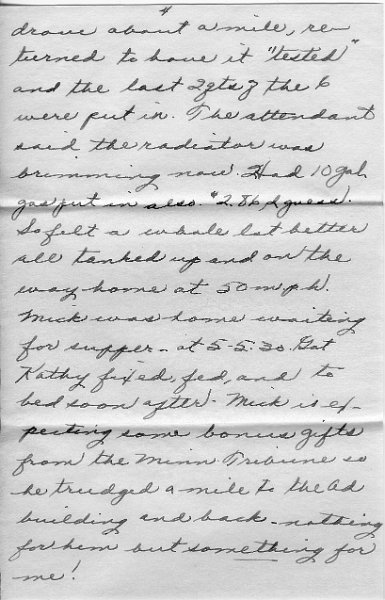 4
drove about a mile, re-
turned to have it "tested"
and the last 2 qts of the 6
were put in. The attendant
said the radiator was
brimming now. Had 10 gal.
gas put in also. $2.86, I guess.
So felt a whole lot better
all tanked up and on the
way home at 50 m.p.h.
Mick was home waiting
for supper - at 5-5:30. Got
Kathy fixed, fed, and to
bed soon after - Mick is ex-
pecting some bonus gifts
from the Minn Tribune so
he trudged a mile to the ad
building and back - nothing
for him but something for
me!